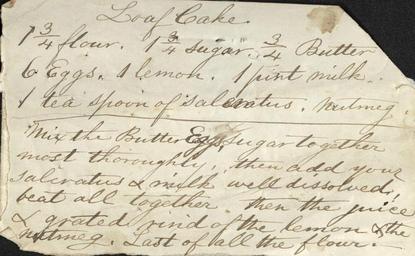 Loaf Cake.
1 3/4 flour. 1 3/4 sugar. 3/4 Butter
6 Eggs. 1 lemon. 1 pint milk.
1 tea spoon of saleratus. Nutmeg.
Mix the Butter Eggs, sugar together
most thoroughly, then add your
saleratus & milk well dissolved,
beat all together. then the juice
& grated rind of the lemon & the
nutmeg. Last of all the flour.